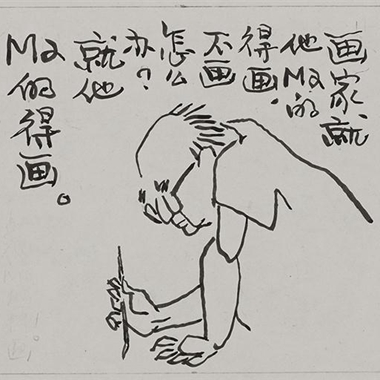 画家、就
他Ma的
得画.
不画
怎么
办?
就他
Ma的得画。